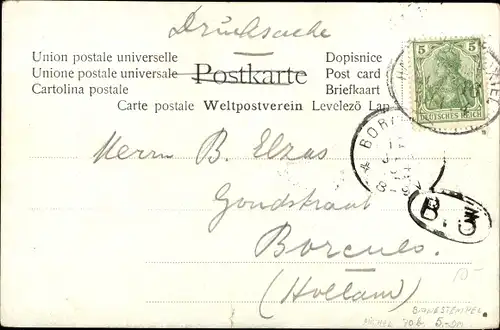 Drucksache
Union postale universelle
Unione postale universale
Cartolina postale
Postkarte
Dopisnice
Post card
Briefkaart
Carte postale Weltpostverein Levelező Lap
5 5
DEUTSCHES REICH
BOR
Herrn B. Elzas
Gondstraat
Borculo.
(Holland)